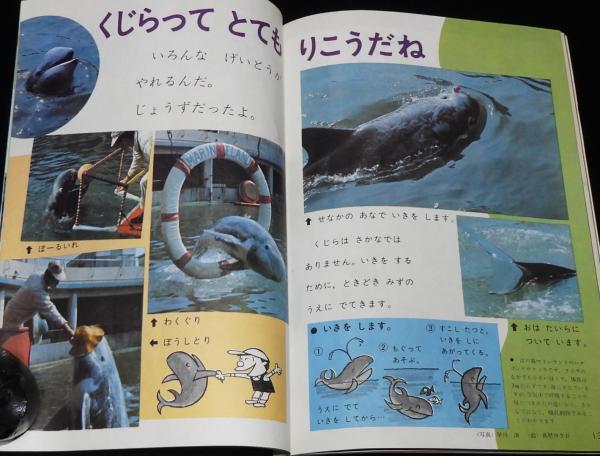 くじらって とても りこうだね
いろんな げいとうが
やれるんだ。
じょうずだったよ。
MARINELAND
↑ ぼーるいれ
↑ わくぐり
← ぼうしとり
↑ せなかの あなで いきを します。
くじらは さかなでは
ありません。いきを する
ために、ときどき みずの
うえに でてきます。
↑ おは たいらに
ついて います。
● いきを します。
①
うえに でて
いきを してから…
② もぐって
あそぶ。
③ すこし たつと、
いきを しに
あがってくる。